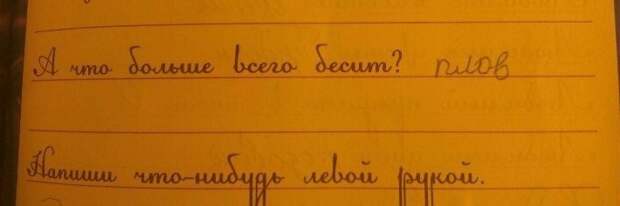 А что больше всего бесит? плов
Напиши что-нибудь левой рукой.